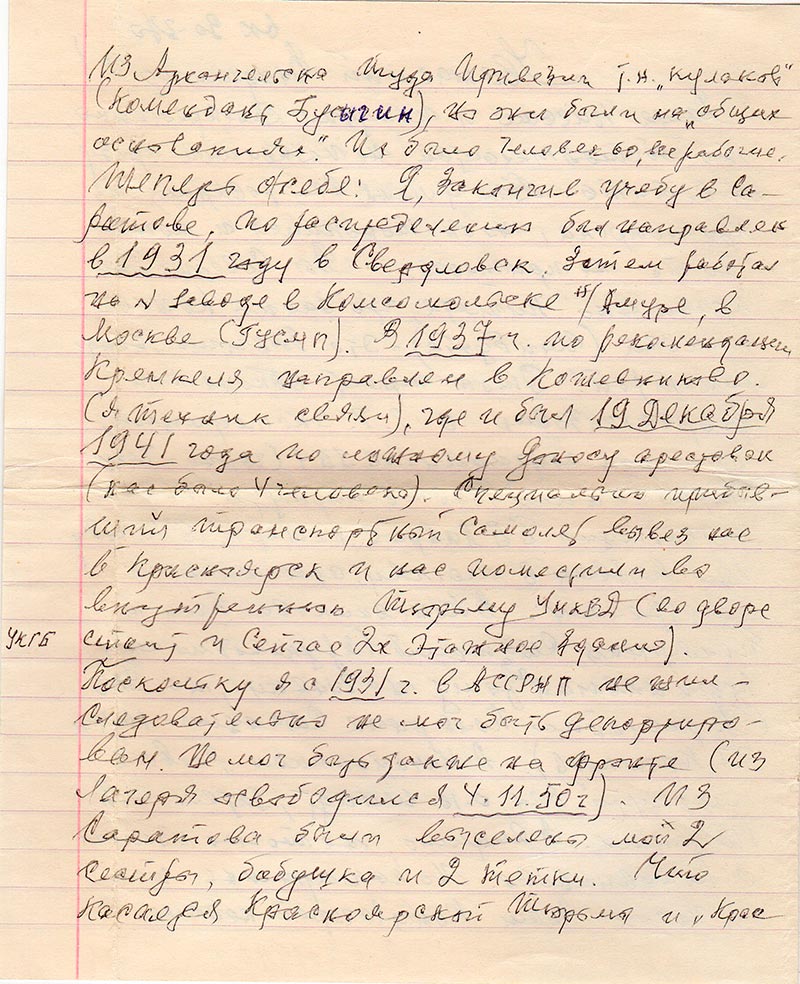 Из Архангельска туда привезли т.н. „кулаков"
(комендант Бусыгин), но они были на „общих
основаниях". Их было человек 60, не рабочие.
Теперь о себе: Я, закончив учебу в Са-
ратове, по распределению был направлен
в 1931 году в Свердловск. Затем работал
на заводе в Комсомольске н/Амуре, в
Москве (ГУСМП). В 1937 г. по рекомендации
Кремкеля направлен в Кожевниково.
(я техник связи), где и был 19 декабря
1941 года по ложному доносу арестован
(нас было 4 человека). Специально прибыв-
ший транспортный самолет вывез нас
в Красноярск и нас поместили во
внутреннюю тюрьму УНКВД (во дворе
УКГБ
стоит и сейчас 2х этажное здание).
Поскольку я с 1931 г. в АССРНП не жил -
следовательно не мог быть депортиро-
ван. Не мог быть также на фронте (из
лагеря освободился 4.11.50 г). Из
Саратова были выселены мои 2
сестры, бабушка и 2 тетки. Что
касается Красноярской тюрьмы и „Крас